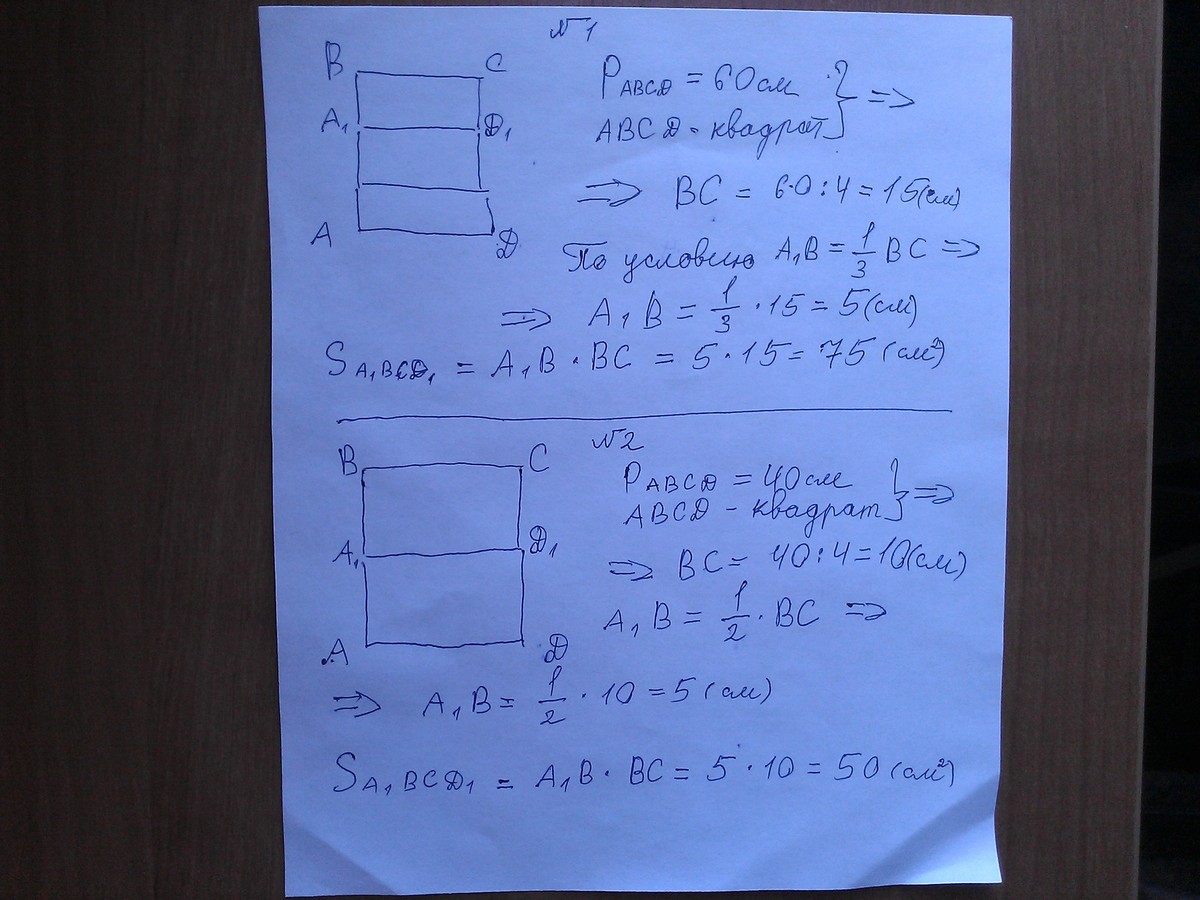 N1
B C
A₁ D₁
A D
P ABCD = 60 см } =>
ABCD - квадрат
=> BC = 60 : 4 = 15 (см)
По условию A₁B = 1/3 BC =>
=> A₁B = 1/3 · 15 = 5 (см)
S A₁BCD₁ = A₁B · BC = 5 · 15 = 75 (см²)
N2
B C
A₁ D₁
A D
P ABCD = 40 см } =>
ABCD - квадрат
=> BC = 40 : 4 = 10 (см)
A₁B = 1/2 · BC =>
=> A₁B = 1/2 · 10 = 5 (см)
S A₁BCD₁ = A₁B · BC = 5 · 10 = 50 (см²)